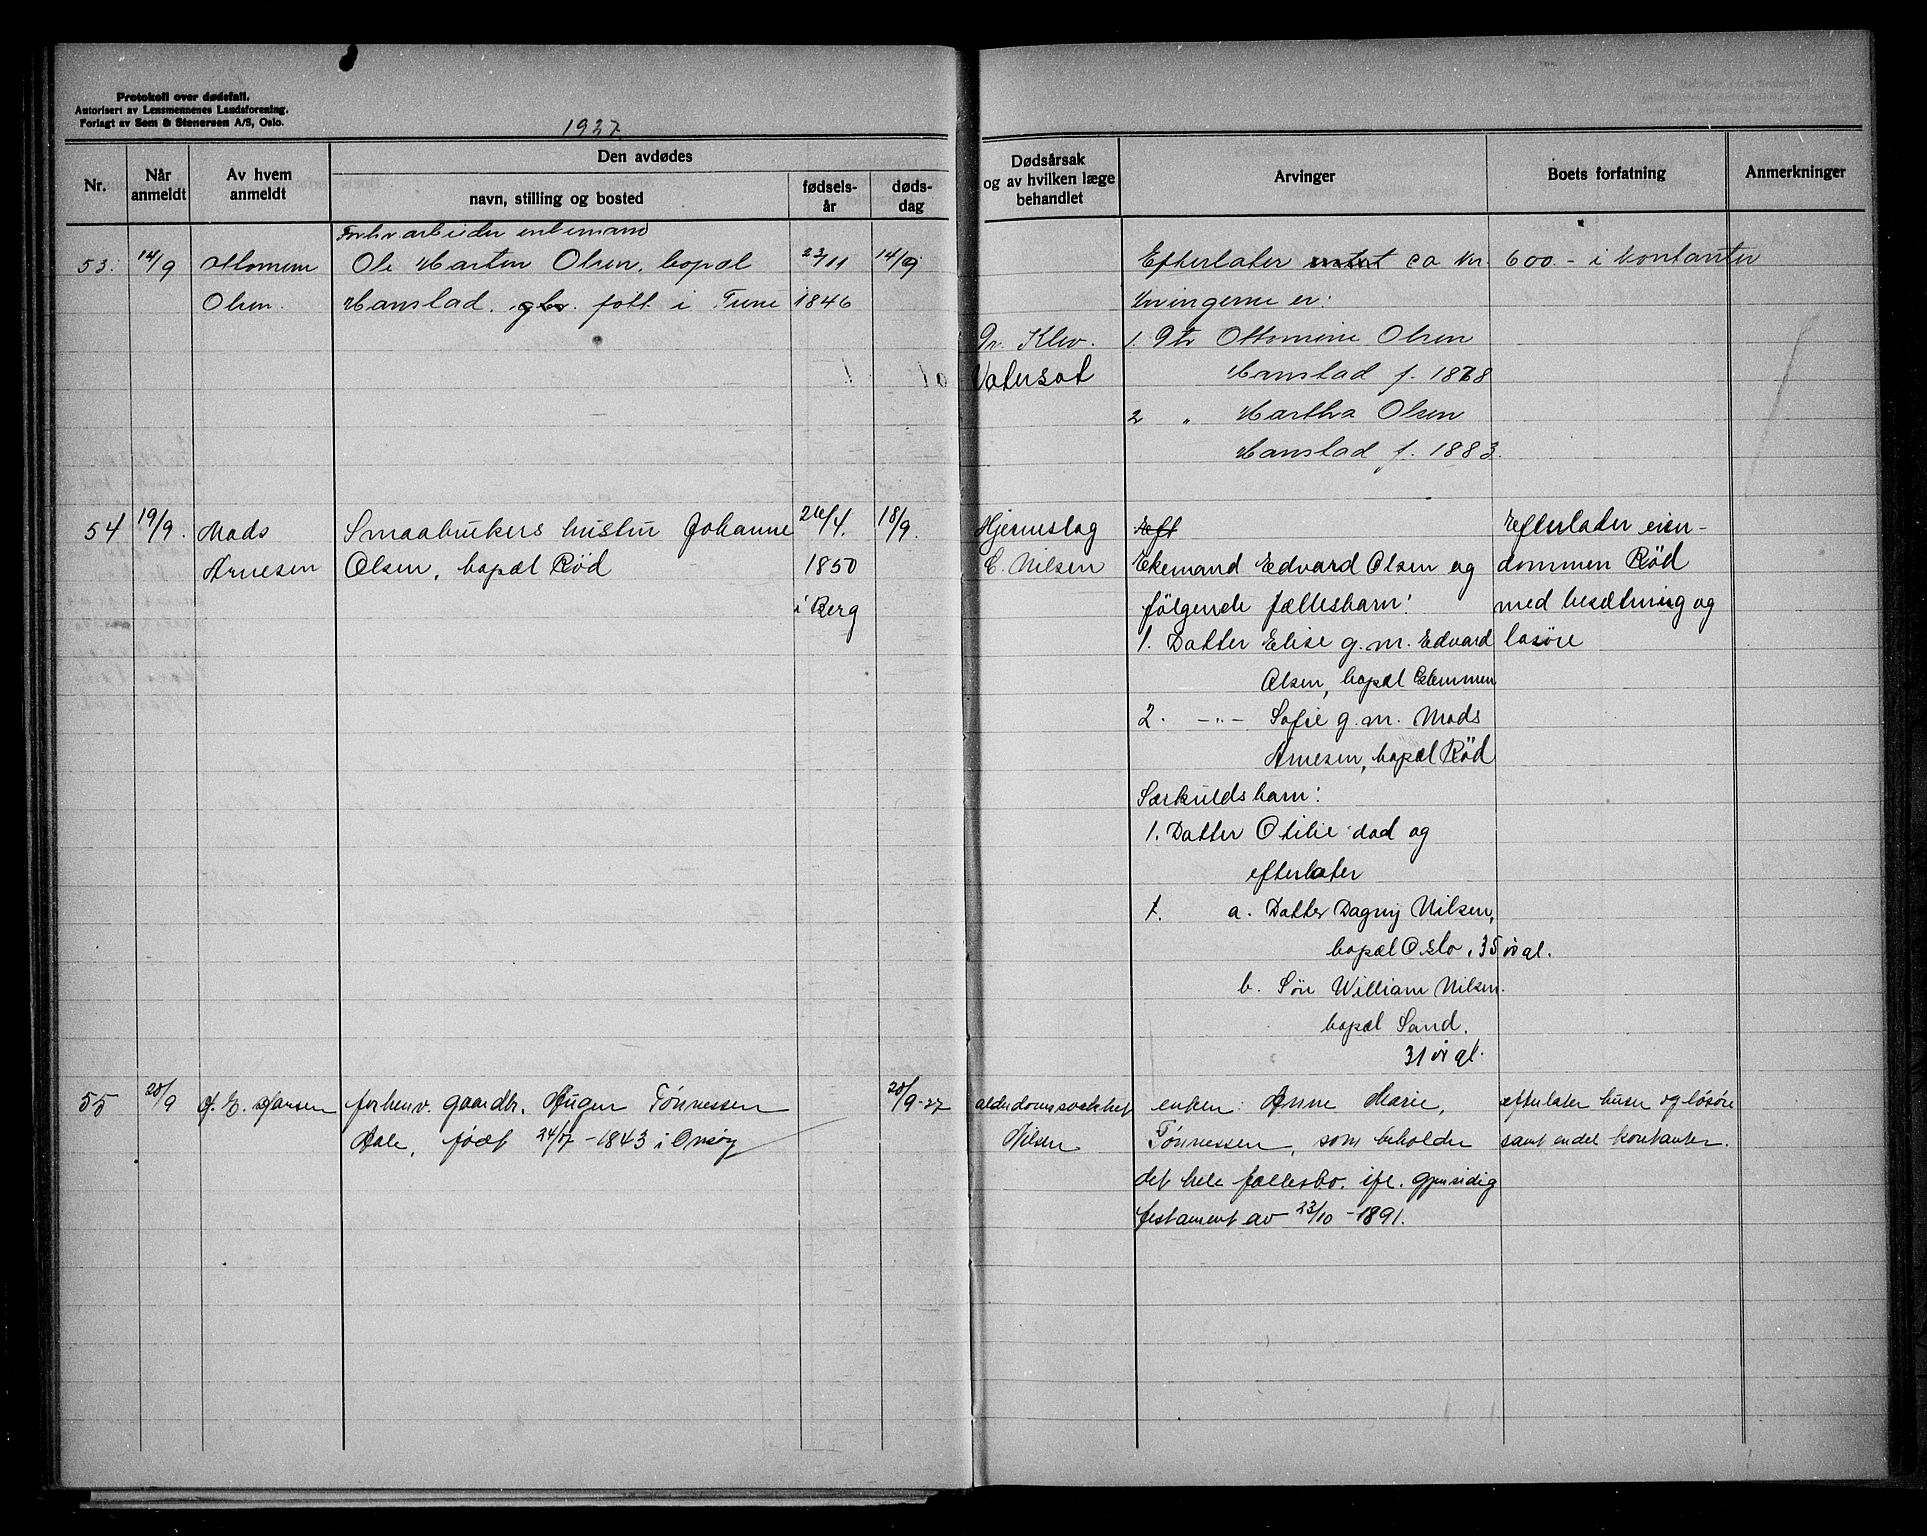 Protokoll over dødsfall.
Autorisert av Lensmennenes Landsforening.
Forlagt av Sem & Stenersen A/S, Oslo.
1927.
Nr.
Når anmeldt
Av hvem anmeldt
Den avdødes
navn, stilling og bosted
fødsels-år
døds-dag
Dødsårsak og av hvilken læge behandlet
Arvinger
Boets forfatning
Anmerkninger
Forhv arbeider enkemand
53. 14/9 Ottomine Ole Marten Olsen, bopæl 23/11 14/9
Olsen. Hanslad. født i Tune 1846
Efterlater ca kr. 600.- i kontanter
Arvingerne er:
Dr. Klev. 1. Dtr Ottomine Olsen
Vatersot Hanslad f. 1878
2 " Martha Olsen
Hanslad f. 1883.
54 19/9. Mads Smaabrukers hustru Johanne 26/4. 18/9.
Arnesen Olsen, bopæl Rød 1850
i Berg
Hjerneslag Eft Efterlater eien-
C. Nilsen Ekemand Edvard Olsen og dommen Rød
følgende fællesbarn: med besætning og
1. Datter Elise g.m. Edvard løsøre
Olsen, bopæl Glemmen
2. -"- Sofie g.m. Mads
Arnesen, bopæl Rød
Særkuldsbarn:
1. Datter Otilie død og
efterlater
1. a. Datter Dagny Nilsen,
bopæl Oslo, 35 år gl.
b. Søn William Nilsen.
bopæl Sand.
31 år gl.
55 20/9 J. E. Hansen forhenv. gaardbr. Hugen Tønnessen 20/9-27
Dale, født 24/7 - 1843 i Onsøy
alderdomssvakhet enken: Anne Marie, efterlater huser og løsøre
Nilsen Tønnessen, som beholder samt endel kontanter.
det hele fællesbo. ifl. gjensidig
testament av 23/10 - 1891.